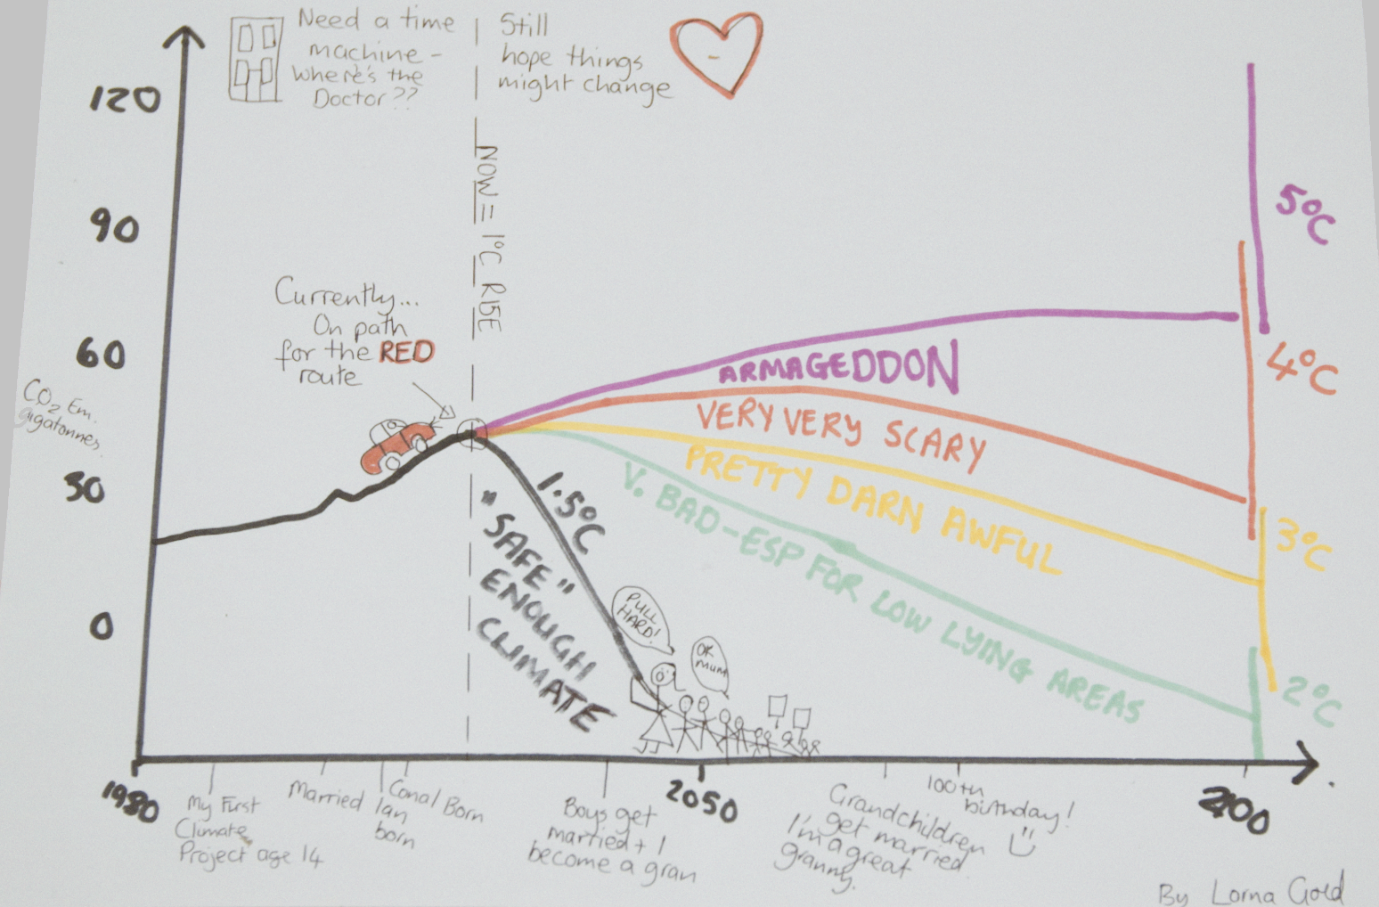 Need a time
machine -
where's the
Doctor??
Still
hope things
might change
120
90
60
30
0
CO2 Em.
gigatonnes
NOW = 1°C RISE
Currently...
On path
for the RED
route
5°C
4°C
3°C
2°C
ARMAGEDDON
VERY VERY SCARY
PRETTY DARN AWFUL
V. BAD-ESP FOR LOW LYING AREAS
1.5°C
"SAFE"
ENOUGH
CLIMATE
PULL
HARD!
OK
MUM
1980
2050
2100
My First
Climate
Project age 14
Married
Ian
born
Conal Born
Boys get
married + I
become a gran
Grandchildren
get married
I'm a great
granny.
100th
birthday!
By Lorna Gold